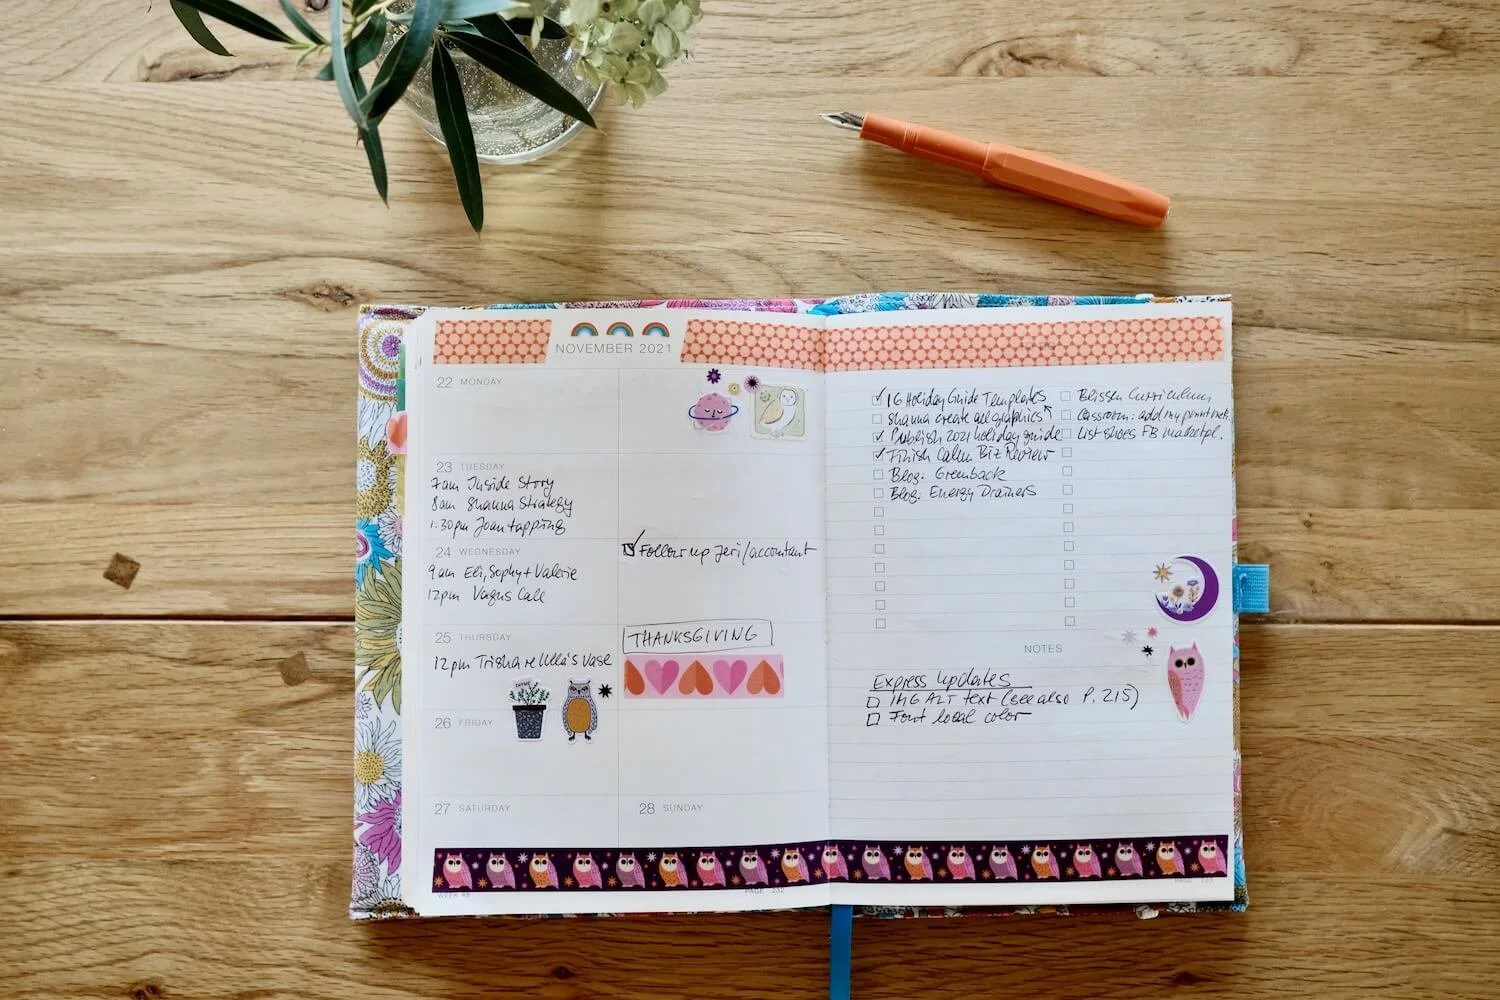 NOVEMBER 2021
22 MONDAY
23 TUESDAY
7am Inside Story
8am Shanna Strategy
1:30pm Joan tapping
24 WEDNESDAY
9am Eli, Sophy + Valerie
12pm Vagus Call
Follow up Jeri/accountant
25 THURSDAY
12pm Trisha re Ulla's vase
THANKSGIVING
THYME
26 FRIDAY
27 SATURDAY
28 SUNDAY
WEEK 48
PAGE 232
16 Holiday Guide Templates
Shanna create all graphics
Publish 2021 holiday guide
Finish Calm Biz Review
Blog: Greenback
Blog: Energy Drainers
Blissen Curriculum
Classroom: add my
List shoes FB marketpl.
NOTES
Express Updates
IMG ALT text (see also P. 215)
Font local color
PAGE